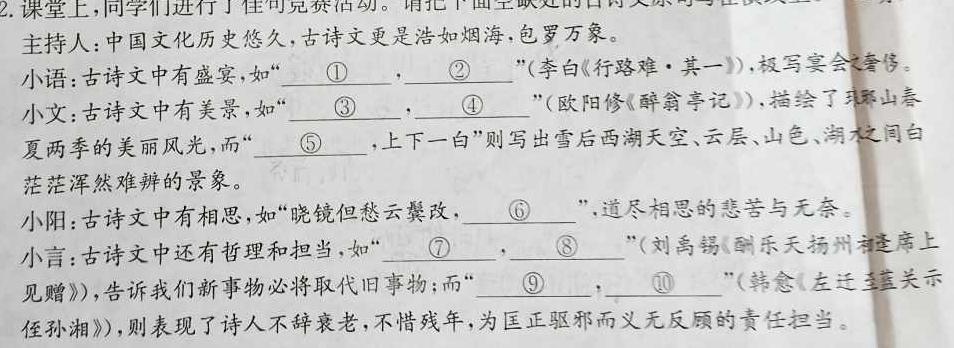 2. 课堂上,同学们进行了佳句竞赛活动。请把下面空缺处的古诗文
主持人:中国文化历史悠久,古诗文更是浩如烟海,包罗万象。
小语:古诗文中有盛宴,如“ ① , ② ”(李白《行路难·其一》),极写宴会之奢侈。
小文:古诗文中有美景,如“ ③ , ④ ”(欧阳修《醉翁亭记》),描绘了琅琊山春
夏两季的美丽风光,而“ ⑤ ,上下一白”则写出雪后西湖天空、云层、山色、湖水之间白
茫茫浑然难辨的景象。
小阳:古诗文中有相思,如“晓镜但愁云鬓改, ⑥ ”,道尽相思的悲苦与无奈。
小言:古诗文中还有哲理和担当,如“ ⑦ , ⑧ ”(刘禹锡《酬乐天扬州初逢席上
见赠》),告诉我们新事物必将取代旧事物;而“ ⑨ , ⑩ ”(韩愈《左迁至蓝关示
侄孙湘》),则表现了诗人不辞衰老,不惜残年,为匡正驱邪而义无反顾的责任担当。